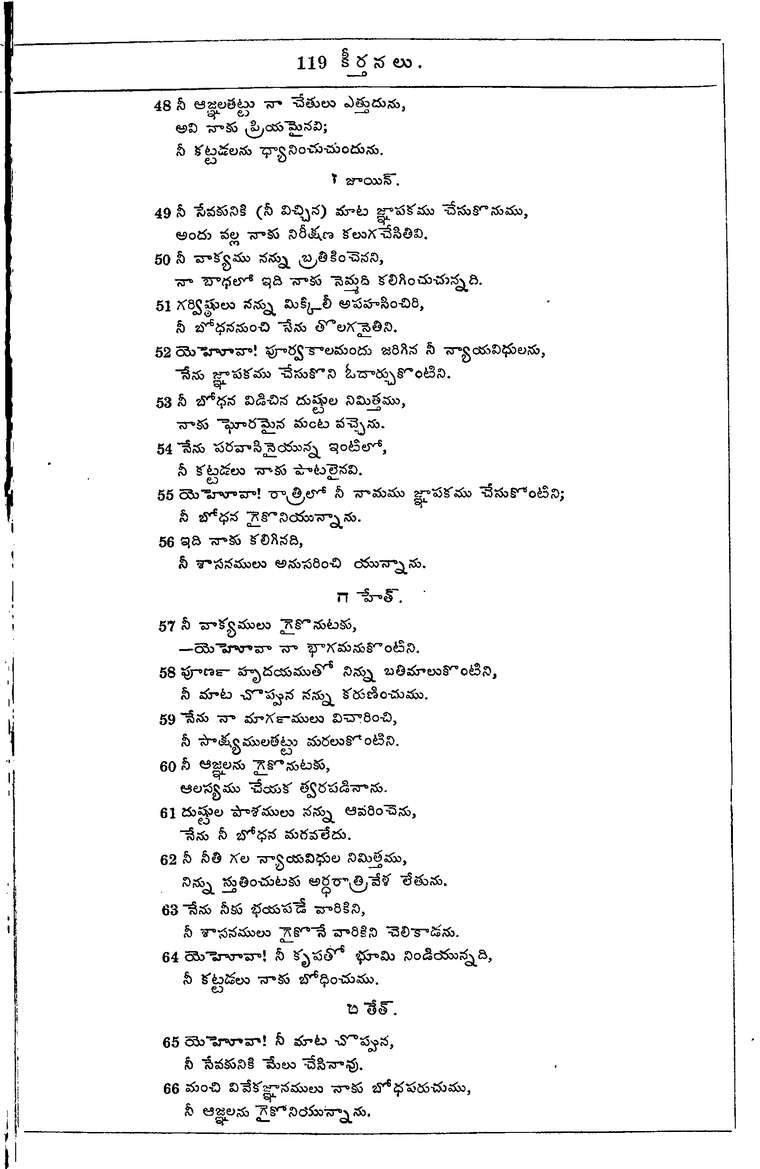 119 కీర్తనలు.
48 నీ ఆజ్ఞలతట్టు నా చేతులు ఎత్తుదును,
అవి నాకు ప్రియమైనవి;
నీ కట్టడలను ధ్యానించుచుందును.
ז జాయిన్.
49 నీ సేవకునికి (నీ విచ్చిన) మాట జ్ఞాపకము చేసుకొనుము,
అందు వల్ల నాకు నిరీక్షణ కలుగచేసితివి.
50 నీ వాక్యము నన్ను బ్రతికించెనని,
నా బాధలో ఇది నాకు నెమ్మది కలిగించుచున్నది.
51 గర్విష్ఠులు నన్ను మిక్కిలీ అపహసించిరి,
నీ బోధననుంచి నేను తొలగనైతిని.
52 యెహోవా! పూర్వకాలమందు జరిగిన నీ న్యాయవిధులను,
నేను జ్ఞాపకము చేసుకొని ఓదార్చుకొంటిని.
53 నీ బోధన విడిచిన దుష్టుల నిమిత్తము,
నాకు ఘోరమైన మంట వచ్చెను.
54 నేను పరవాసినైయున్న ఇంటిలో,
నీ కట్టడలు నాకు పాటలైనవి.
55 యెహోవా! రాత్రిలో నీ నామము జ్ఞాపకము చేసుకొంటిని;
నీ బోధన గైకొనియున్నాను.
56 ఇది నాకు కలిగినది,
నీ శాసనములు అనుసరించి యున్నాను.
ח హేత్.
57 నీ వాక్యములు గైకొనుటకు,
—యెహోవా నా భాగమనుకొంటిని.
58 పూర్ణ హృదయముతో నిన్ను బతిమాలుకొంటిని,
నీ మాట చొప్పున నన్ను కరుణించుము.
59 నేను నా మార్గములు విచారించి,
నీ సాక్ష్యములతట్టు మరలుకొంటిని.
60 నీ ఆజ్ఞలను గైకొనుటకు,
ఆలస్యము చేయక త్వరపడినాను.
61 దుష్టుల పాశములు నన్ను ఆవరించెను,
నేను నీ బోధన మరవలేదు.
62 నీ నీతి గల న్యాయవిధుల నిమిత్తము,
నిన్ను స్తుతించుటకు అర్ధరాత్రివేళ లేతును.
63 నేను నీకు భయపడే వారికిని,
నీ శాసనములు గైకొనే వారికిని చెలికాడను.
64 యెహోవా! నీ కృపతో భూమి నిండియున్నది,
నీ కట్టడలు నాకు బోధించుము.
ט తేత్.
65 యెహోవా! నీ మాట చొప్పున,
నీ సేవకునికి మేలు చేసినావు.
66 మంచి వివేకజ్ఞానములు నాకు బోధపరుచుము,
నీ ఆజ్ఞలను గైకొనియున్నాను.